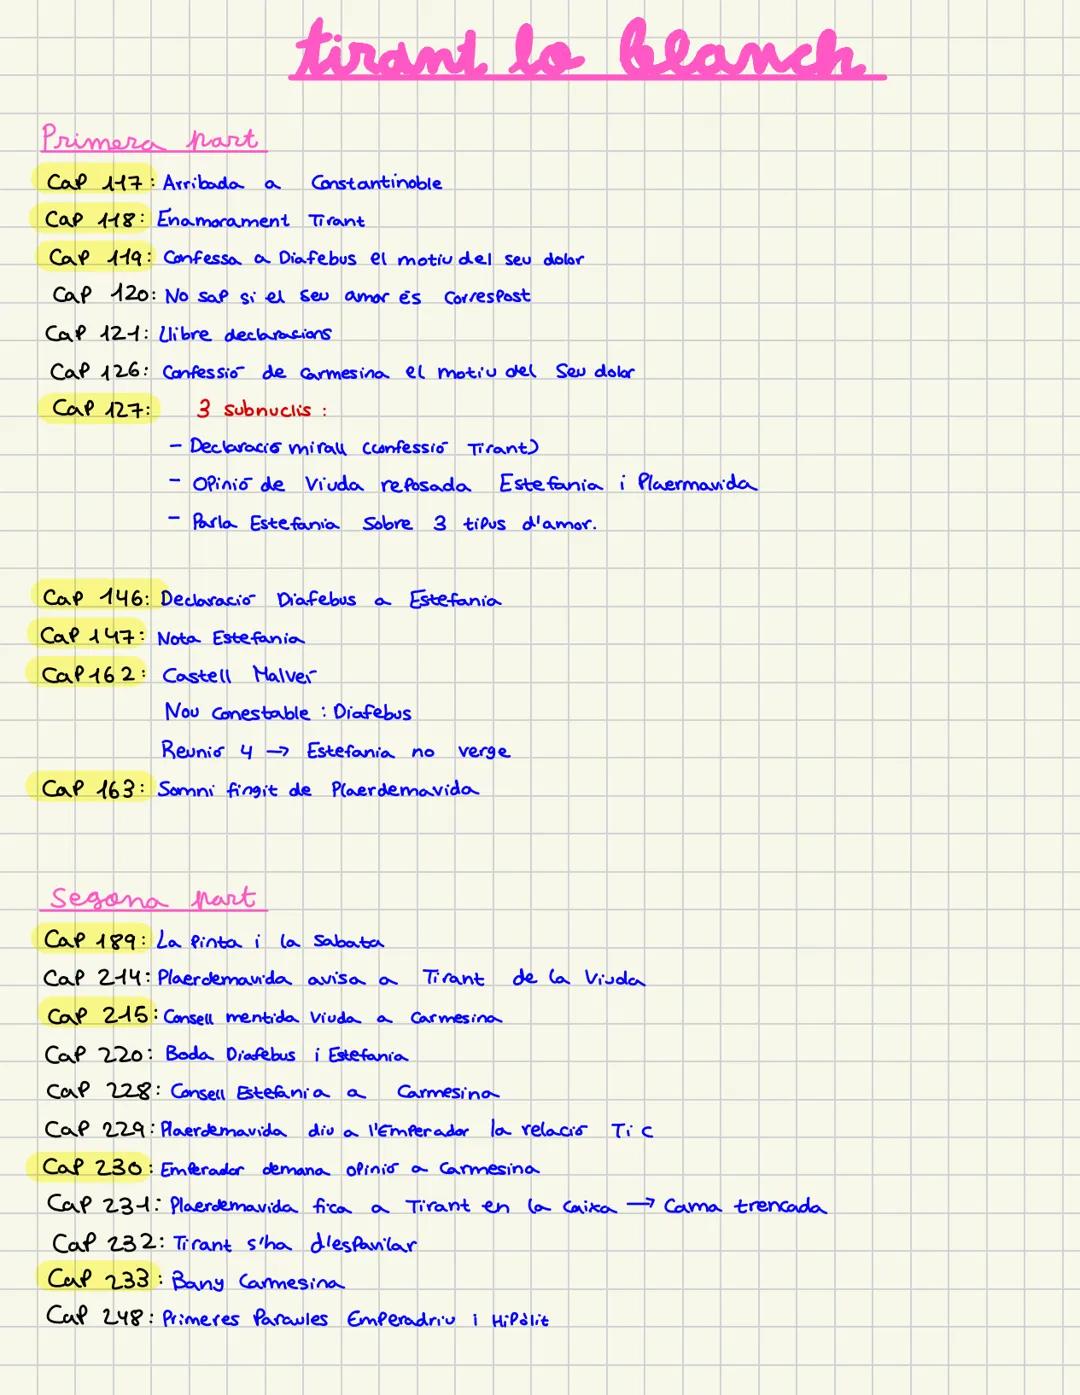 tirant lo blanch
Primera part
Cap 117: Arribada a Constantinoble
Cap 118: Enamorament Tirant
Cap 119: Confessa a Diafebus el motiu del seu dolor
Cap 120: No sap si el seu amor és correspost
Cap 121: Llibre declaracions
Cap 126: Confessió de Carmesina el motiu del seu dolor
Cap 127: 3 subnuclis :
- Declaració mirall (confessió Tirant)
- Opinió de Viuda reposada Estefania i Plaermavida
- Parla Estefania sobre 3 tipus d'amor.
Cap 146: Declaració Diafebus a Estefania
Cap 147: Nota Estefania
Cap 162: Castell Malver
Nou conestable : Diafebus
Reunió 4 → Estefania no verge
Cap 163: Somni fingit de Plaerdemavida
Segona part
Cap 189: La pinta i la sabata
Cap 214: Plaerdemavida avisa a Tirant de la Viuda
Cap 215: Consell mentida Viuda a Carmesina
Cap 220: Boda Diafebus i Estefania
Cap 228: Consell Estefania a Carmesina
Cap 229: Plaerdemavida diu a l'Emperador la relació T i C
Cap 230: Emperador demana opinió a Carmesina
Cap 231: Plaerdemavida fica a Tirant en la caixa → Cama trencada
Cap 232: Tirant s'ha d'espavilar
Cap 233: Bany Carmesina
Cap 248: Primeres Paraules Emperadriu i Hipòlit